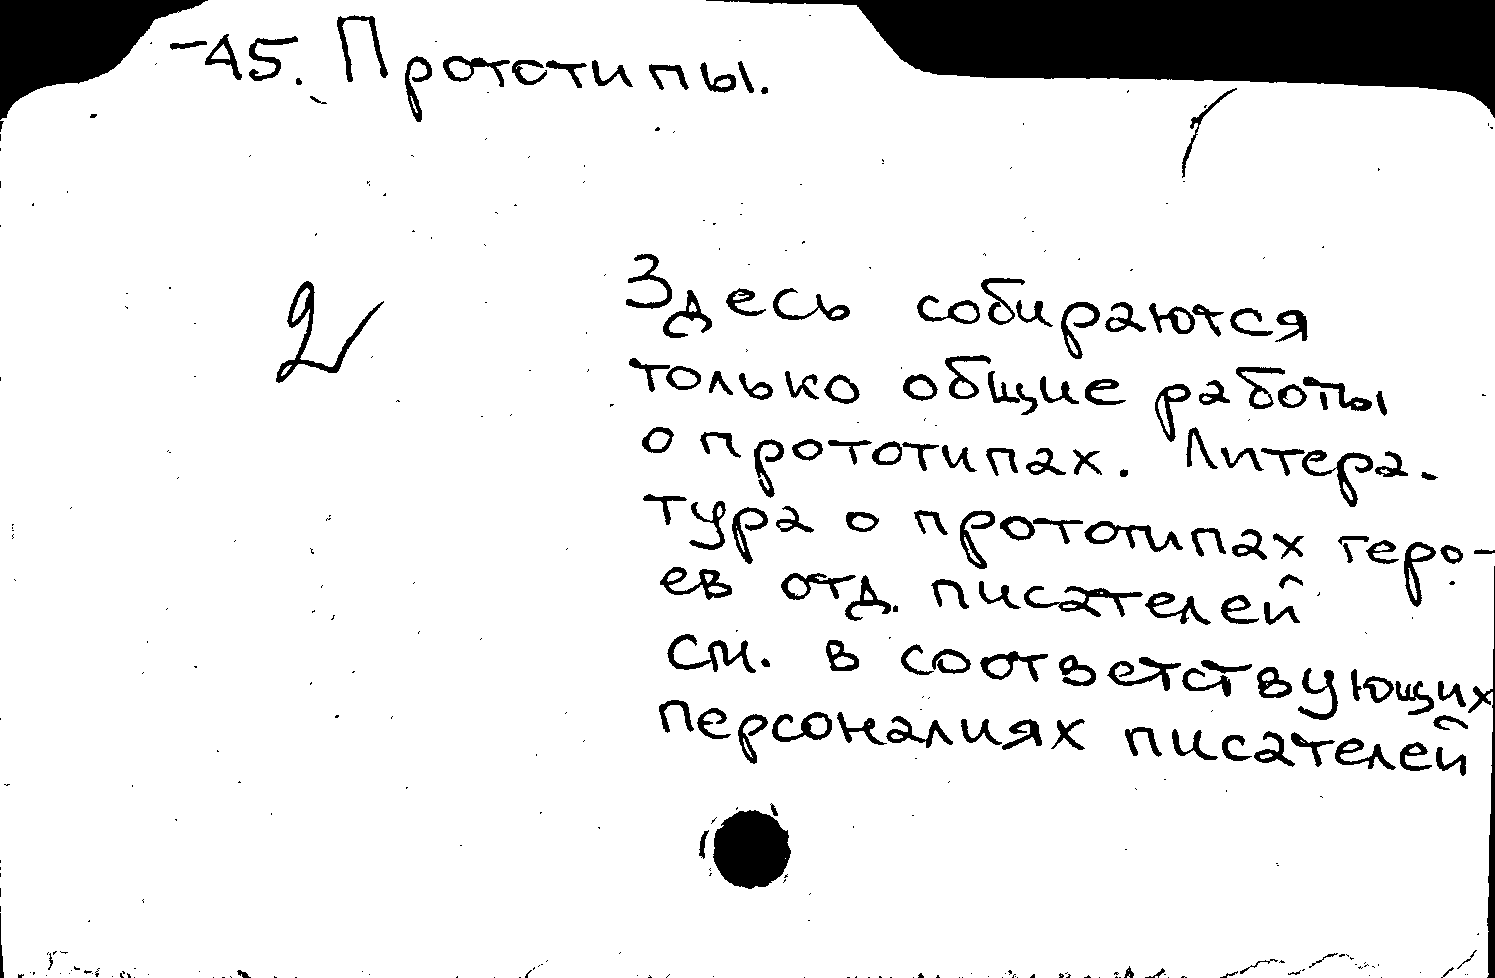 -45. Прототипы.
2
Здесь собираются
только общие работы
о прототипах. Литера-
тура о прототипах геро-
ев отд. писателей
см. в соответствующих
персоналиях писателей